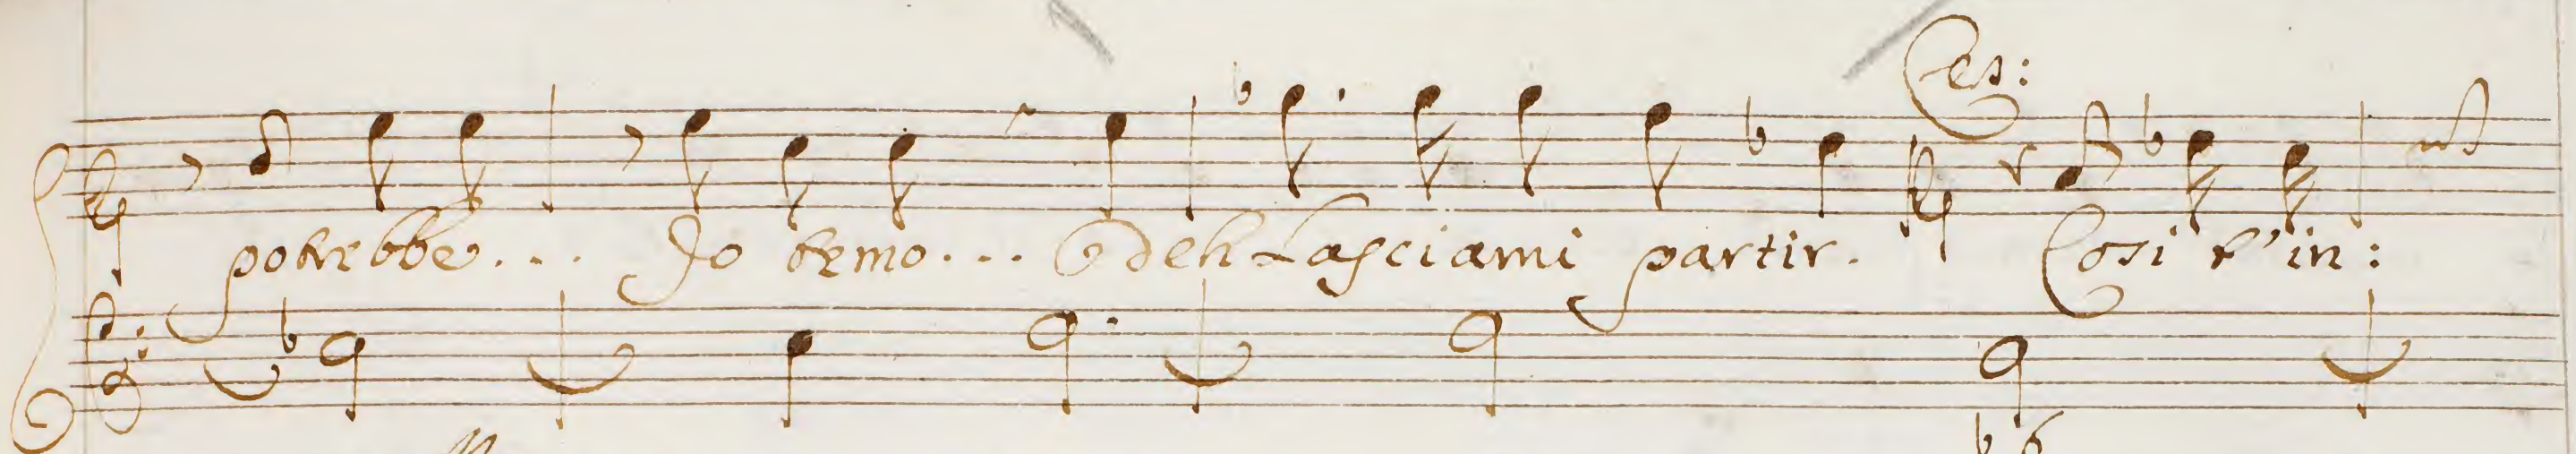 Ces:
potrebbe... Io temo... e deh Lasciami partir. Così t'in:
b 6